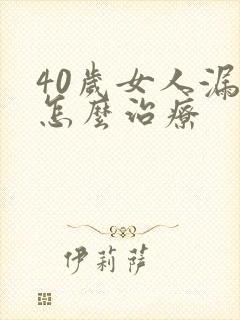 40歲女人漏
怎麼治療
伊莉萨